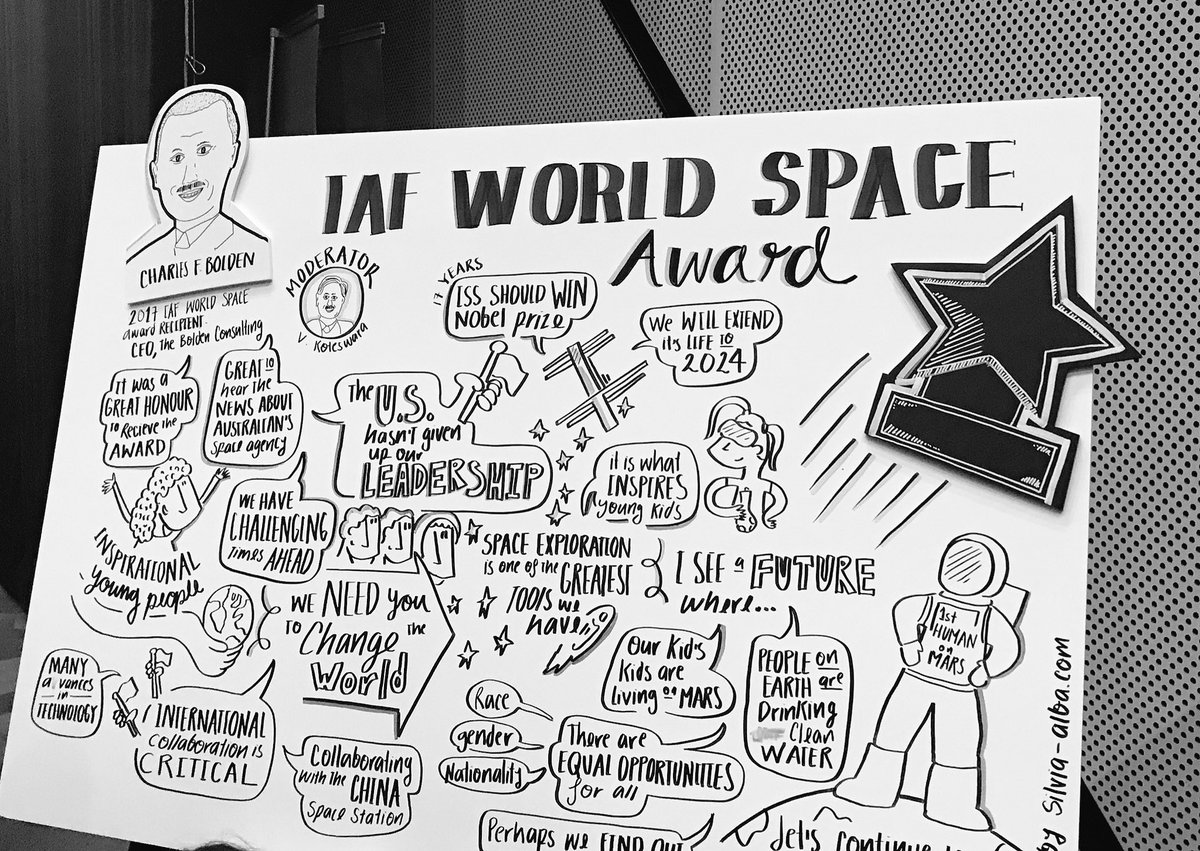 IAF WORLD SPACE
Award
CHARLES F BOLDEN
2017 IAF WORLD SPACE
award RECIPIENT
CEO, The Bolden Consulting
MODERATOR
V. Koteswara
17 YEARS
ISS SHOULD WIN
Nobel prize
We WILL EXTEND
its LIFE TO
2024
IT WAS A
GREAT HONOUR
TO RECIEVE the
AWARD
GREAT TO
hear the
NEWS ABOUT
AUSTRALIAN'S
Space agency
The U.S.
hasn't given
up our
LEADERSHIP
it is what
INSPIRES
young kids
WE HAVE
CHALLENGING
times AHEAD
INSPIRATIONAL
young people
WE NEED you
TO Change the
World
SPACE EXPLORATION
is one of the
GREATEST
TOOLS we
have
I SEE a FUTURE
where...
Our Kid's
Kids are
living on MARS
PEOPLE on
EARTH are
Drinking
Clean
WATER
1st
HUMAN
on
MARS
MANY
a vances
in
TECHNOLOGY
INTERNATIONAL
Collaboration is
CRITICAL
Collaborating
with the CHINA
Space Station
Race
gender
Nationality
There are
EQUAL OPPORTUNITIES
for all
Perhaps we FIND OUT
Let's continue
by Silvia-alba.com